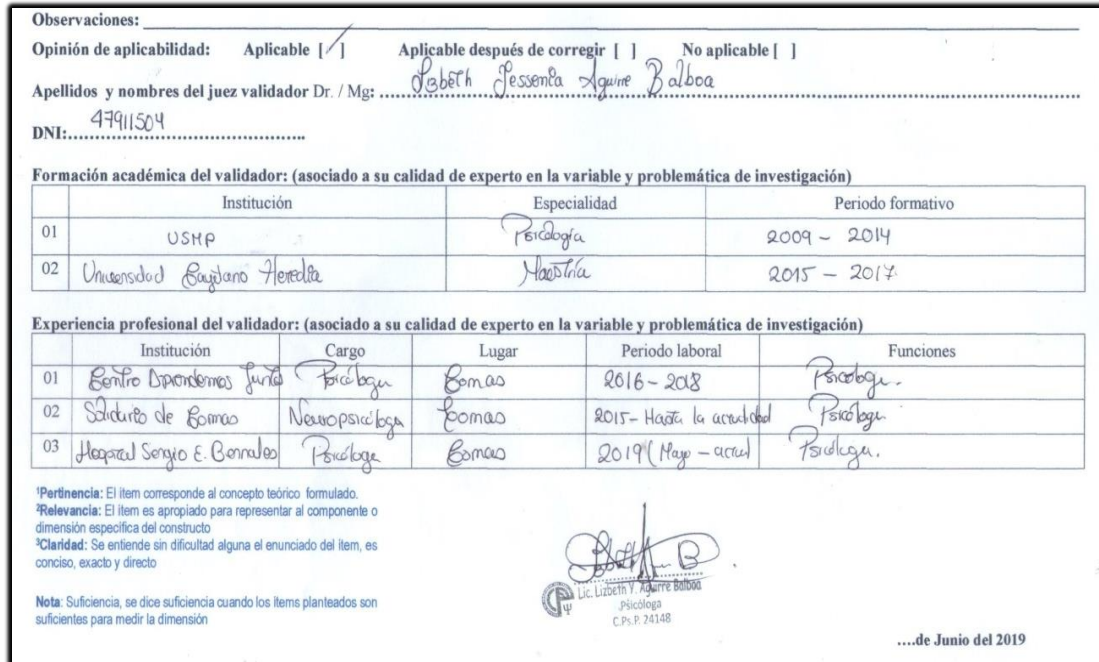 Observaciones:
Opinión de aplicabilidad: Aplicable [/] Aplicable después de corregir [ ] No aplicable [ ]
Apellidos y nombres del juez validador Dr. / Mg: Lizbeth Jessenia Aguirre Balboa
DNI: 47911504
Formación académica del validador: (asociado a su calidad de experto en la variable y problemática de investigación)
Institución Especialidad Periodo formativo
01 USMP Psicología 2009 - 2014
02 Universidad Cayetano Heredia Maestría 2015 - 2017
Experiencia profesional del validador: (asociado a su calidad de experto en la variable y problemática de investigación)
Institución Cargo Lugar Periodo laboral Funciones
01 Centro Aprendemos Juntos Psicóloga Comas 2016 - 2018 Psicóloga.
02 Solidario de Comas Neuropsicóloga Comas 2015 - Hasta la actualidad Psicóloga
03 Hospital Sergio E. Bernales Psicóloga Comas 2019 (Mayo - actual) Psicóloga.
¹Pertinencia: El ítem corresponde al concepto teórico formulado.
²Relevancia: El ítem es apropiado para representar al componente o
dimensión específica del constructo
³Claridad: Se entiende sin dificultad alguna el enunciado del ítem, es
conciso, exacto y directo
Nota: Suficiencia, se dice suficiencia cuando los ítems planteados son
suficientes para medir la dimensión
Lic. Lizbeth Y. Aguirre Balboa
Psicóloga
C.Ps.P. 24148
....de Junio del 2019